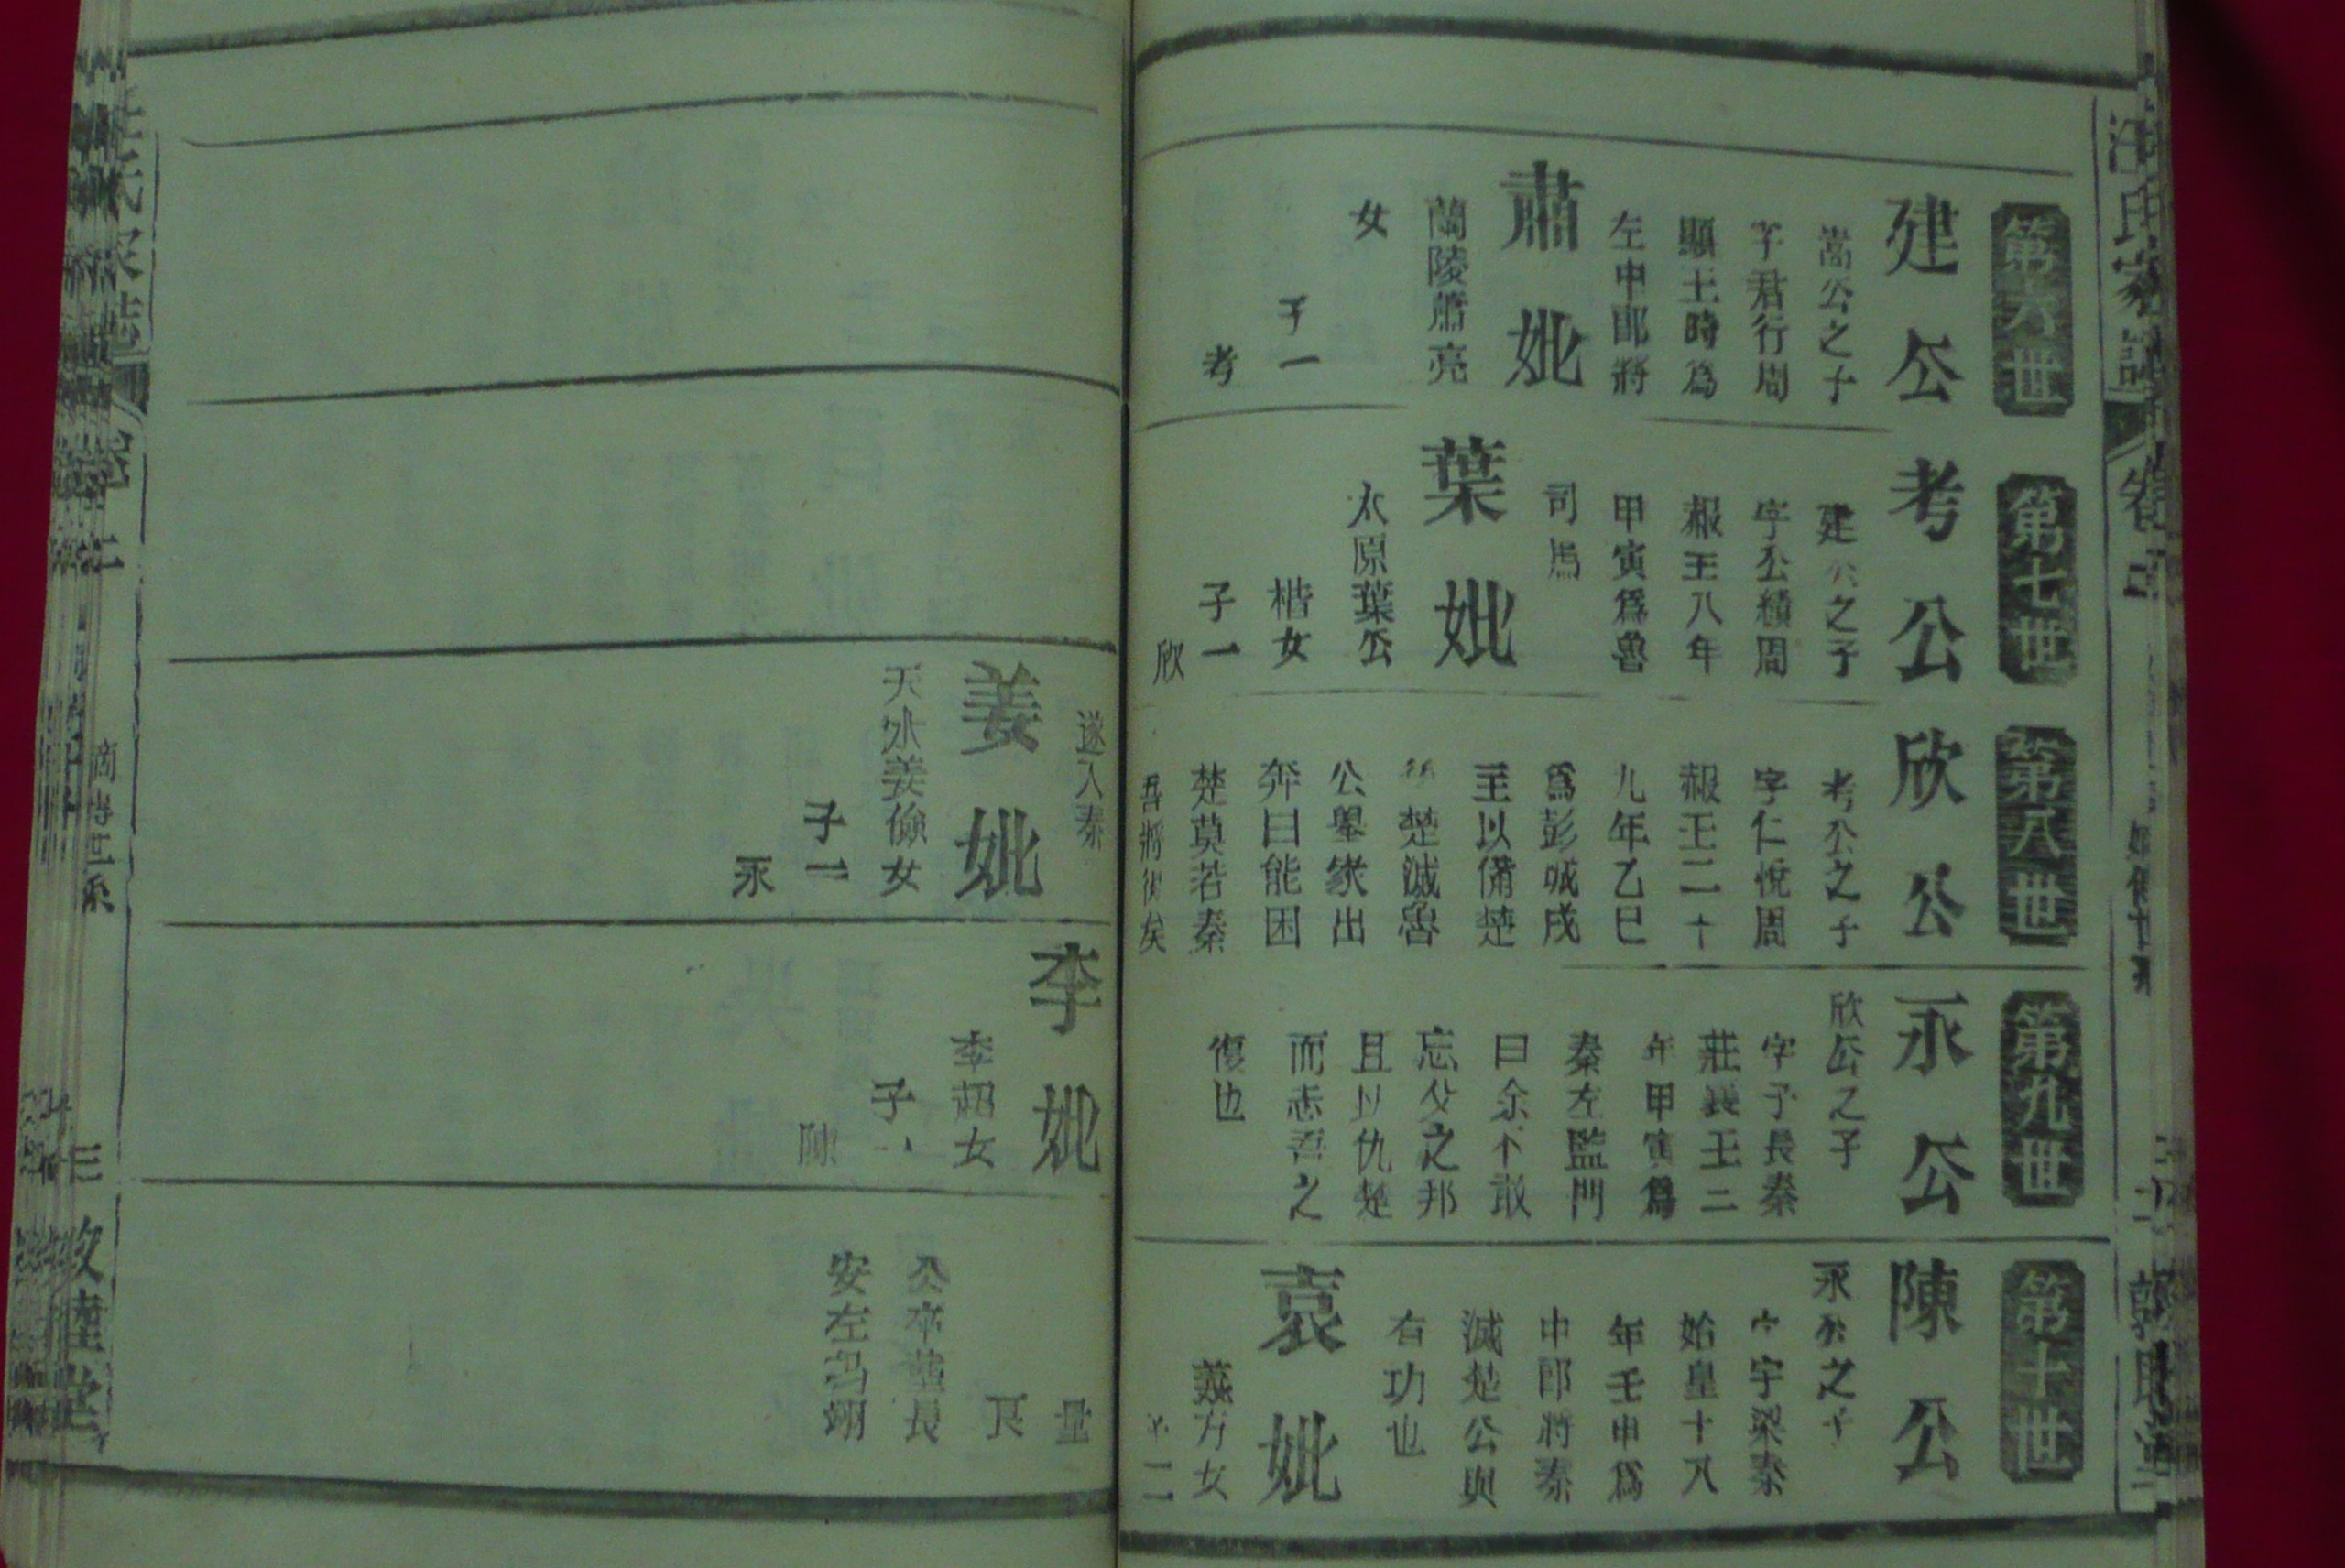 第六世
建公
嵩公之子
字君行周
顯王時爲
左中郎將
肅妣
蘭陵蕭亮
女
子一
考
第七世
考公
建公之子
字公績周
赧王八年
甲寅爲魯
司馬
葉妣
太原葉公
楷女
子一
欣
第八世
欣公
考公之子
字仁悅周
赧王二十
九年乙巳
爲彭城戍
主以備楚
後楚滅魯
公舉家出
奔曰能困
楚莫若秦
吾將從矣
遂入秦
姜妣
天水姜儉女
子一
承
第九世
承公
欣公之子
字子長秦
莊襄王二
年甲寅爲
秦左監門
曰余不敢
忘父之邦
且以仇楚
而志吾之
復也
李妣
李超女
子一
陳
第十世
陳公
承公之子
字宇梁秦
始皇十八
年壬申爲
中郎將秦
滅楚公與
有功也
袁妣
袁方女
子二
量
艮
公卒塟長
安左馮翊
汪氏家譜
卷二
商傳世系
三
敦睦堂